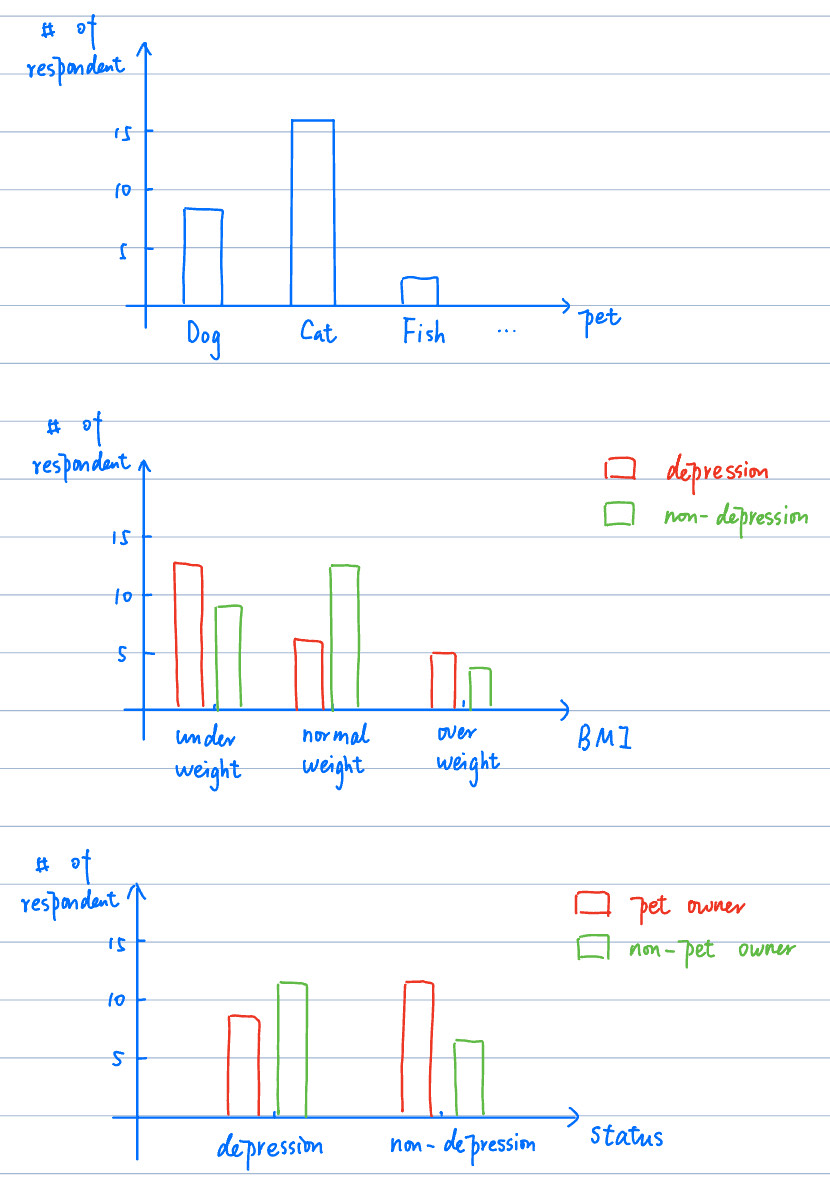 # of
respondent
15
10
5
Dog Cat Fish ...
pet
# of
respondent
depression
non-depression
15
10
5
under normal over
weight weight weight
BMI
# of
respondent
pet owner
non-pet owner
15
10
5
depression non-depression
status